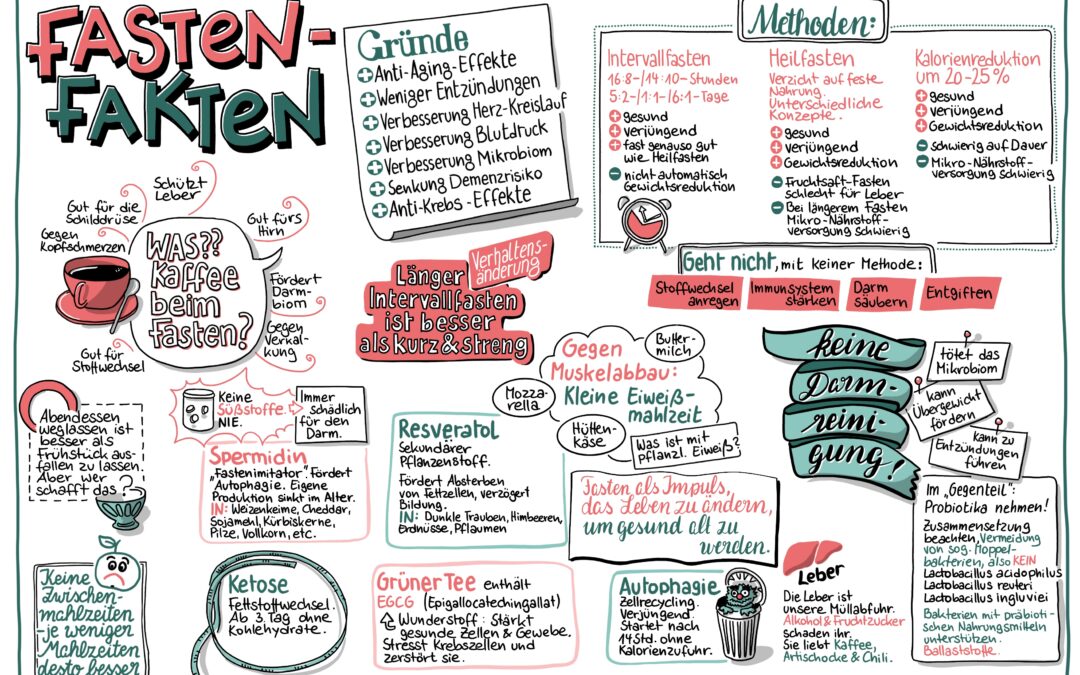 FASTEN-
FAKTEN
Gründe
Anti-Aging-Effekte
Weniger Entzündungen
Verbesserung Herz-Kreislauf
Verbesserung Blutdruck
Verbesserung Mikrobiom
Senkung Demenzrisiko
Anti-Krebs-Effekte
Methoden:
Intervallfasten
16:8-/14:10-Stunden
5:2-/1:1-/6:1-Tage
gesund
verjüngend
fast genauso gut
wie Heilfasten
nicht automatisch
Gewichtsreduktion
Heilfasten
Verzicht auf feste
Nahrung.
Unterschiedliche
Konzepte.
gesund
verjüngend
Gewichtsreduktion
Fruchtsaft-Fasten
schlecht für Leber
Bei längerem Fasten
Mikro-Nährstoff-
versorgung schwierig
Kalorienreduktion
um 20-25%
gesund
verjüngend
Gewichtsreduktion
schwierig auf Dauer
Mikro-Nährstoff-
versorgung schwierig
Geht nicht, mit keiner Methode:
Stoffwechsel
anregen
Immunsystem
stärken
Darm
säubern
Entgiften
WAS??
Kaffee
beim
Fasten?
Schützt
Leber
Gut für die
Schilddrüse
Gegen
Kopfschmerzen
Gut fürs
Hirn
Fördert
Darm-
biom
Gegen
Verkal-
kung
Gut für
Stoffwechsel
Verhaltens-
änderung
Länger
Intervallfasten
ist besser
als kurz & streng
Gegen
Muskelabbau:
Kleine Eiweiß-
mahlzeit
Butter-
milch
Mozza-
rella
Hütten-
käse
Was ist mit
pflanzl. Eiweiß?
keine
Darm-
reini-
gung!
tötet das
Mikrobiom
kann
Übergewicht
fördern
kann zu
Entzündungen
führen
Abendessen
weglassen ist
besser als
Frühstück aus-
fallen zu lassen.
Aber wer
schafft das?
Keine
Süßstoffe.
NIE.
Immer
schädlich
für den
Darm.
Spermidin
"Fastenimitator". Fördert
Autophagie. Eigene
Produktion sinkt im Alter.
IN: Weizenkeime, Cheddar,
Sojamehl, Kürbiskerne,
Pilze, Vollkorn, etc.
Resveratol
Sekundärer
Pflanzenstoff.
Fördert Absterben
von Fettzellen, verzögert
Bildung.
IN: Dunkle Trauben, Himbeeren,
Erdnüsse, Pflaumen
Fasten als Impuls,
das Leben zu ändern,
um gesund alt zu
werden.
Im "Gegenteil":
Probiotika nehmen!
Zusammensetzung
beachten, Vermeidung
von sog. Moppel-
bakterien, also KEIN
Lactobacillus acidophilus
Lactobacillus reuteri
Lactobacillus ingluviei
Bakterien mit präbioti-
schen Nahrungsmitteln
unterstützen.
Ballaststoffe.
Keine
Zwischen-
mahlzeiten
-je weniger
Mahlzeiten
desto besser
Ketose
Fettstoffwechsel.
Ab 3. Tag ohne
Kohlehydrate.
Grüner Tee enthält
EGCG (Epigallocatechingallat)
Wunderstoff: Stärkt
gesunde Zellen & Gewebe.
Stresst Krebszellen und
zerstört sie.
Autophagie
Zellrecycling.
Verjüngend.
Startet nach
14 Std. ohne
Kalorienzufuhr.
Leber
Die Leber ist
unsere Müllabfuhr.
Alkohol & Fruchtzucker
schaden ihr.
Sie liebt Kaffee,
Artischocke & Chili.